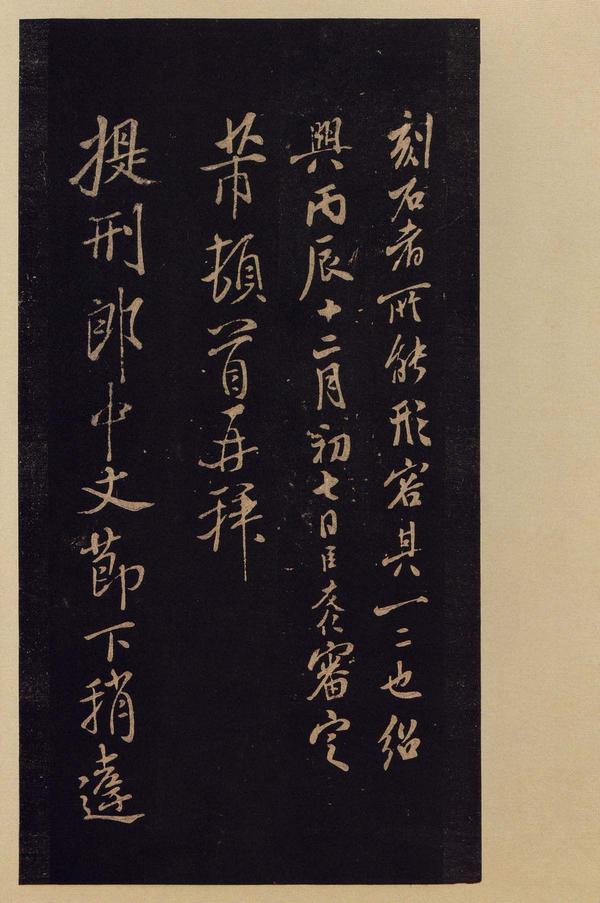 刻石者所能形容其一二也紹
興丙辰十二月初七日臣友仁審定
芾頓首再拜
提刑郎中丈節下稍違